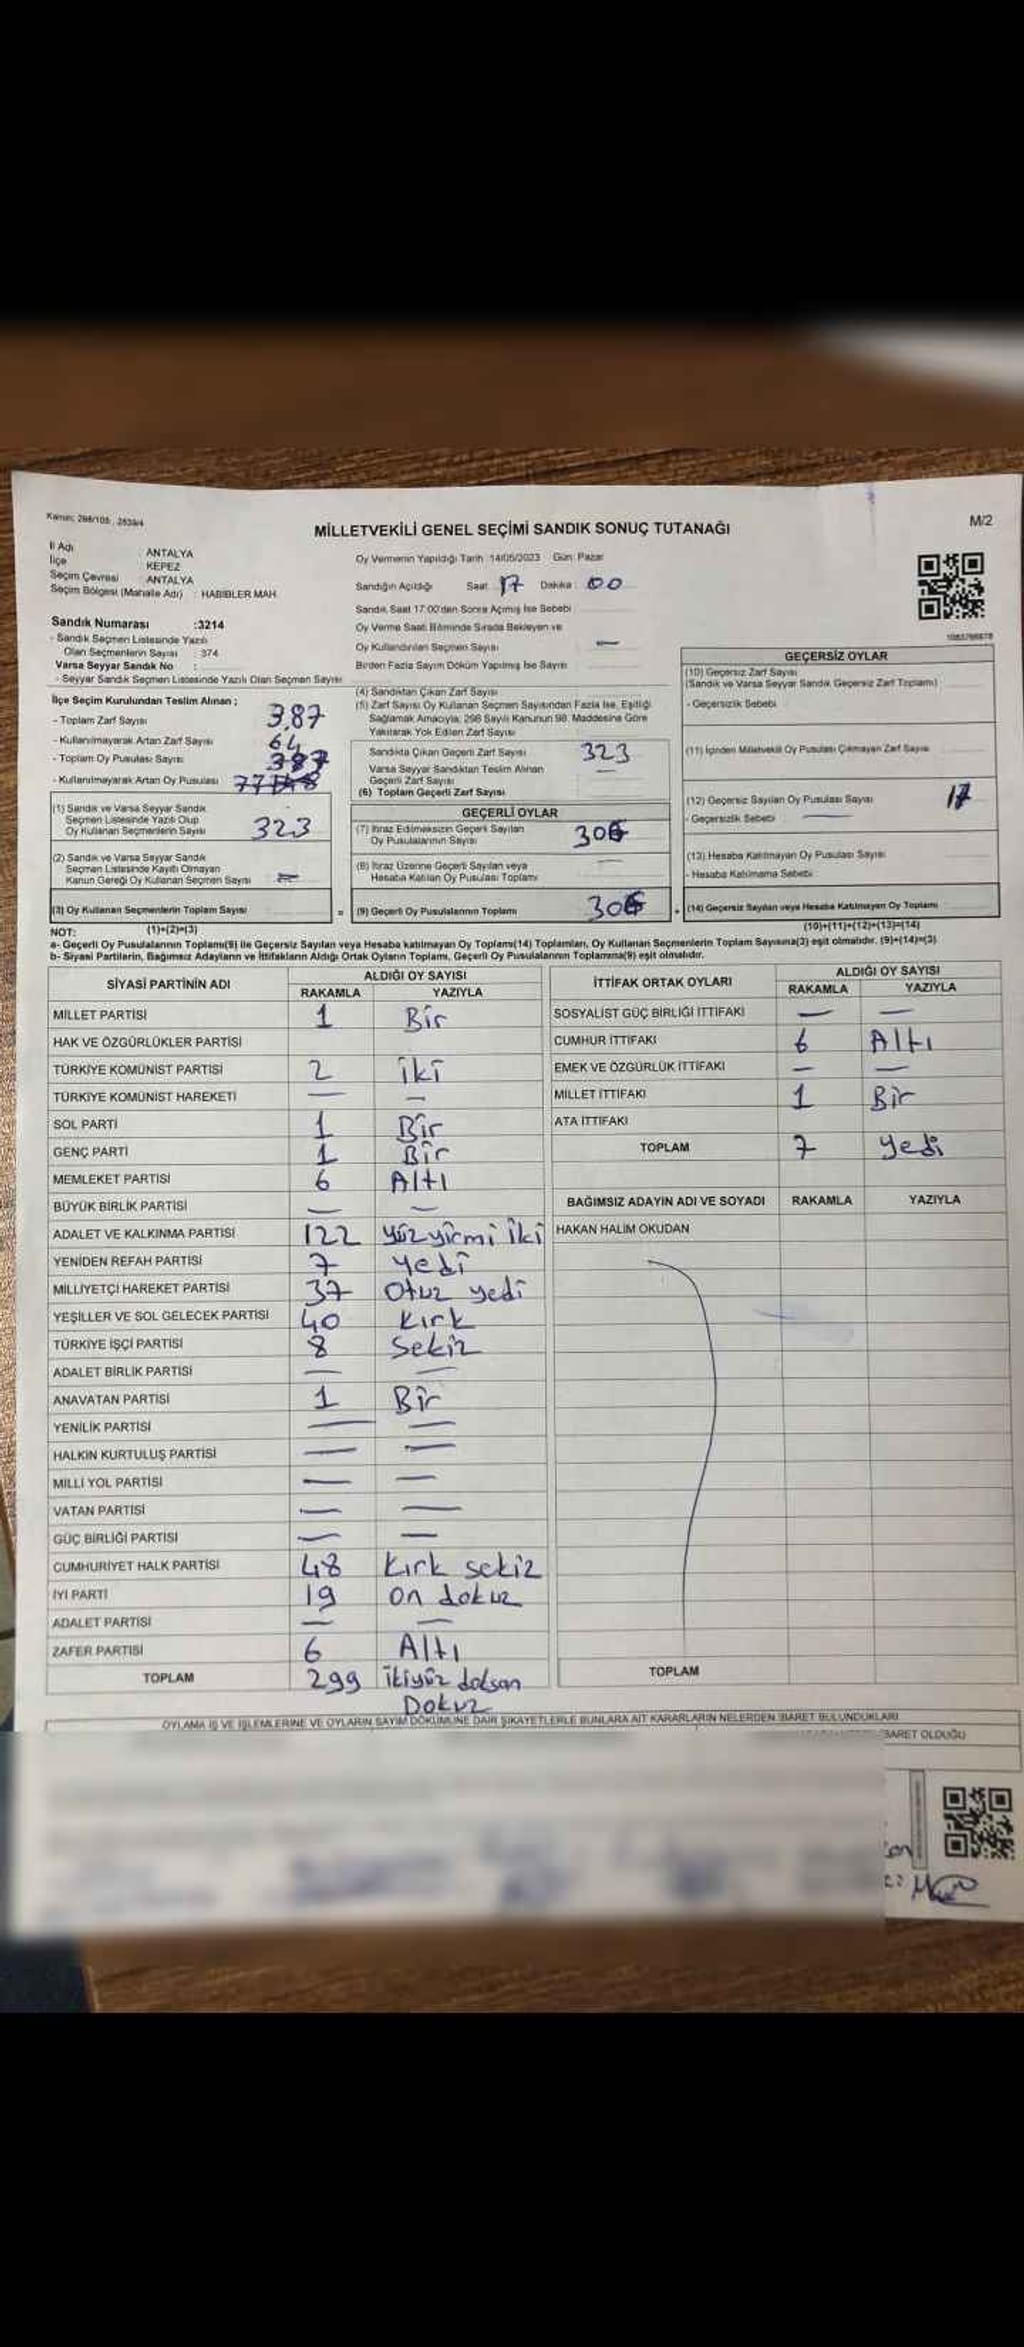 Kanun: 298/105 , 2839/4
M/2
MİLLETVEKİLİ GENEL SEÇİMİ SANDIK SONUÇ TUTANAĞI
İl Adı : ANTALYA
İlçe : KEPEZ
Seçim Çevresi : ANTALYA
Seçim Bölgesi (Mahalle Adı) : HABİBLER MAH.
Oy Vermenin Yapıldığı Tarih :14/05/2023 Gün: Pazar
Sandığın Açıldığı Saat: 17 Dakika: 00
Sandık Saat 17:00'den Sonra Açılmış İse Sebebi
Oy Verme Saati Bitiminde Sırada Bekleyen ve
Oy Kullandırılan Seçmen Sayısı —
Birden Fazla Sayım Döküm Yapılmış İse Sayısı
Sandık Numarası :3214
- Sandık Seçmen Listesinde Yazılı
Olan Seçmenlerin Sayısı : 374
Varsa Seyyar Sandık No :
- Seyyar Sandık Seçmen Listesinde Yazılı Olan Seçmen Sayısı
İlçe Seçim Kurulundan Teslim Alınan ;
- Toplam Zarf Sayısı 387
- Kullanılmayarak Artan Zarf Sayısı 64
- Toplam Oy Pusulası Sayısı 387
- Kullanılmayarak Artan Oy Pusulası
(1) Sandık ve Varsa Seyyar Sandık
Seçmen Listesinde Yazılı Olup
Oy Kullanan Seçmenlerin Sayısı 323
(2) Sandık ve Varsa Seyyar Sandık
Seçmen Listesinde Kayıtlı Olmayan
Kanun Gereği Oy Kullanan Seçmen Sayısı
(3) Oy Kullanan Seçmenlerin Toplam Sayısı
(4) Sandıktan Çıkan Zarf Sayısı
(5) Zarf Sayısı Oy Kullanan Seçmen Sayısından Fazla İse, Eşitliği
Sağlamak Amacıyla; 298 Sayılı Kanunun 98. Maddesine Göre
Yakılarak Yok Edilen Zarf Sayısı
Sandıkta Çıkan Geçerli Zarf Sayısı 323
Varsa Seyyar Sandıktan Teslim Alınan
Geçerli Zarf Sayısı —
(6) Toplam Geçerli Zarf Sayısı
GEÇERLİ OYLAR
(7) İtiraz Edilmeksizin Geçerli Sayılan
Oy Pusulalarının Sayısı 306
(8) İtiraz Üzerine Geçerli Sayılan veya
Hesaba Katılan Oy Pusulası Toplamı —
= (9) Geçerli Oy Pusulalarının Toplamı 306
GEÇERSİZ OYLAR
(10) Geçersiz Zarf Sayısı
(Sandık ve Varsa Seyyar Sandık Geçersiz Zarf Toplamı)
- Geçersizlik Sebebi
(11) İçinden Milletvekili Oy Pusulası Çıkmayan Zarf Sayısı
(12) Geçersiz Sayılan Oy Pusulası Sayısı 17
- Geçersizlik Sebebi : —
(13) Hesaba Katılmayan Oy Pusulası Sayısı
- Hesaba Katılmama Sebebi
+ (14) Geçersiz Sayılan veya Hesaba Katılmayan Oy Toplamı
NOT: (1)+(2)=(3)
(10)+(11)+(12)+(13)=(14)
a- Geçerli Oy Pusulalarının Toplamı(9) ile Geçersiz Sayılan veya Hesaba katılmayan Oy Toplamı(14) Toplamları, Oy Kullanan Seçmenlerin Toplam Sayısına(3) eşit olmalıdır. (9)+(14)=(3)
b- Siyasi Partilerin, Bağımsız Adayların ve İttifakların Aldığı Ortak Oyların Toplamı, Geçerli Oy Pusulalarının Toplamına(9) eşit olmalıdır.
SİYASİ PARTİNİN ADI ALDIĞI OY SAYISI
RAKAMLA YAZIYLA
MİLLET PARTİSİ 1 Bir
HAK VE ÖZGÜRLÜKLER PARTİSİ
TÜRKİYE KOMÜNİST PARTİSİ 2 iki
TÜRKİYE KOMÜNİST HAREKETİ — —
SOL PARTİ 1 Bir
GENÇ PARTİ 1 Bir
MEMLEKET PARTİSİ 6 Altı
BÜYÜK BİRLİK PARTİSİ — —
ADALET VE KALKINMA PARTİSİ 122 yüz yirmi iki
YENİDEN REFAH PARTİSİ 7 yedi
MİLLİYETÇİ HAREKET PARTİSİ 37 Otuz yedi
YEŞİLLER VE SOL GELECEK PARTİSİ 40 Kırk
TÜRKİYE İŞÇİ PARTİSİ 8 Sekiz
ADALET BİRLİK PARTİSİ — —
ANAVATAN PARTİSİ 1 Bir
YENİLİK PARTİSİ — —
HALKIN KURTULUŞ PARTİSİ — —
MİLLİ YOL PARTİSİ — —
VATAN PARTİSİ — —
GÜÇ BİRLİĞİ PARTİSİ — —
CUMHURİYET HALK PARTİSİ 48 Kırk sekiz
İYİ PARTİ 19 on dokuz
ADALET PARTİSİ — —
ZAFER PARTİSİ 6 Altı
TOPLAM 299 ikiyüz doksan
Dokuz
İTTİFAK ORTAK OYLARI ALDIĞI OY SAYISI
RAKAMLA YAZIYLA
SOSYALİST GÜÇ BİRLİĞİ İTTİFAKI — —
CUMHUR İTTİFAKI 6 Altı
EMEK VE ÖZGÜRLÜK İTTİFAKI — —
MİLLET İTTİFAKI 1 Bir
ATA İTTİFAKI
TOPLAM 7 yedi
BAĞIMSIZ ADAYIN ADI VE SOYADI RAKAMLA YAZIYLA
HAKAN HALİM OKUDAN
TOPLAM
OYLAMA İŞ VE İŞLEMLERİNE VE OYLARIN SAYIM DÖKÜMÜNE DAİR ŞİKAYETLERLE BUNLARA AİT KARARLARIN NELERDEN İBARET BULUNDUKLARI
BARET OLDUĞU